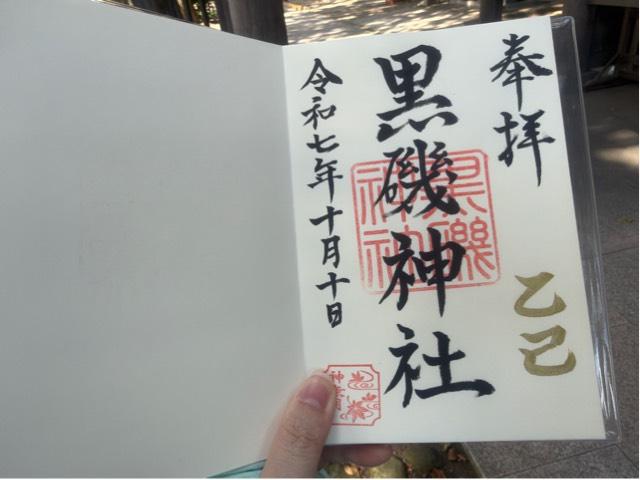 奉拝
乙巳
黒磯神社
黒磯
神社
令和七年十月十日
神無月